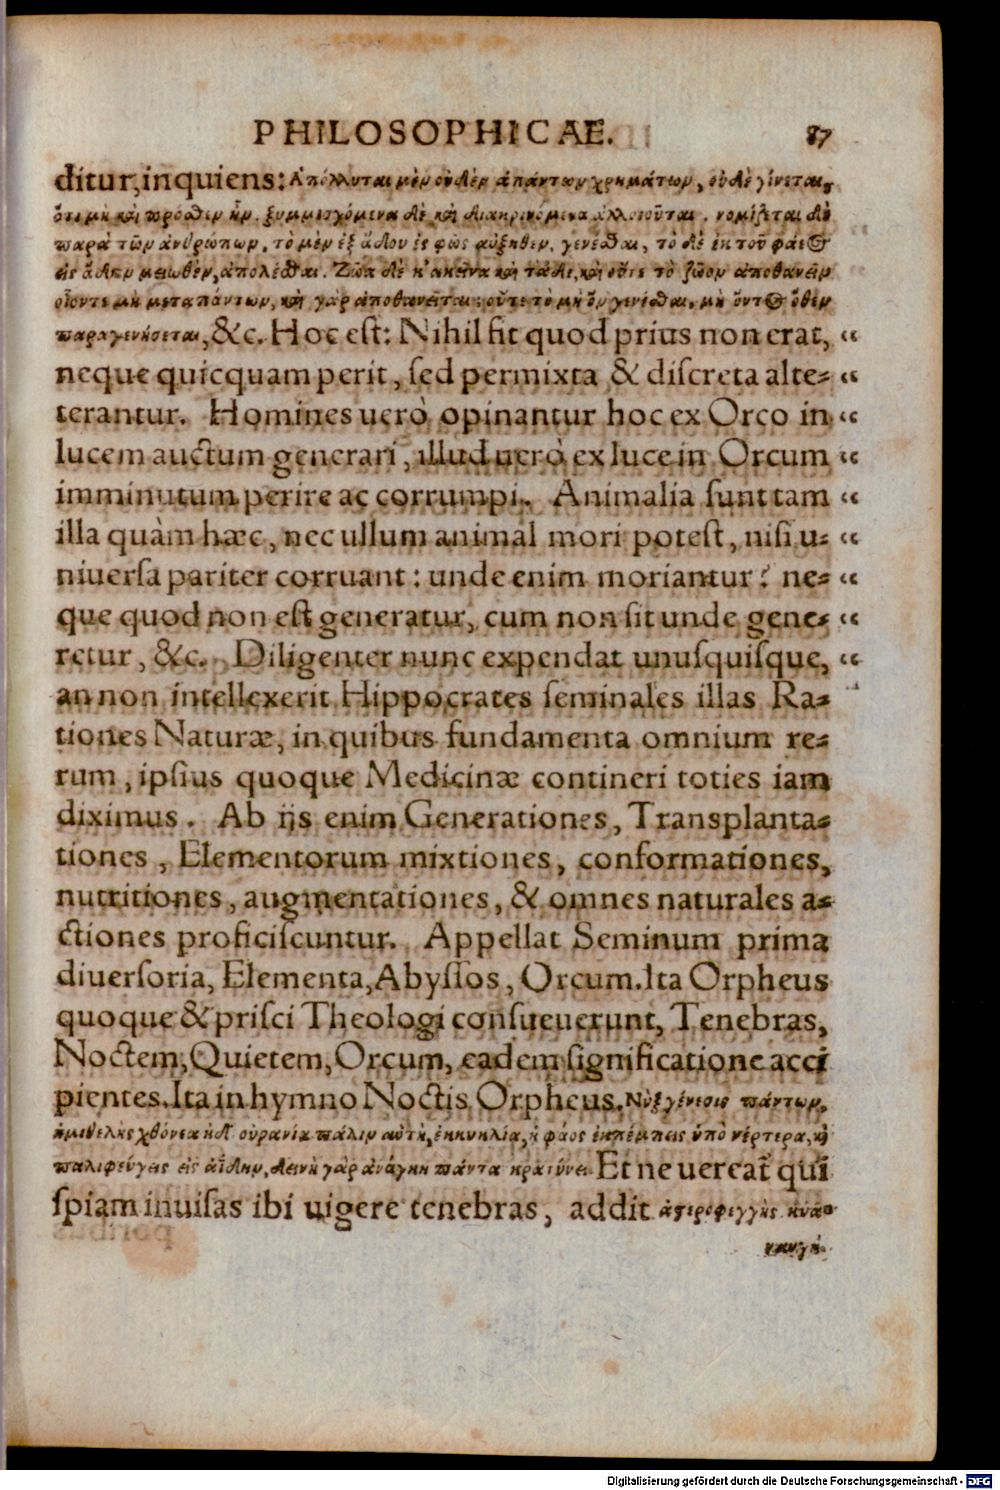 PHILOSOPHICAE. 87
ditur, inquiens: Ἀπόλλυται μὲν οὐδὲν ἁπάντων χρημάτων, οὐδὲ γίνεται,
ὅτι μὴ καὶ πρόσθεν ἦν. ξυμμισγόμενα δὲ καὶ διακρινόμενα ἀλλοιοῦται. νομίζεται δὲ
παρὰ τῶν ἀνθρώπων, τὸ μὲν ἐξ ᾅδου ἐς φῶς αὐξηθὲν, γενέσθαι, τὸ δὲ ἐκ τοῦ φάεος
εἰς ᾅδην μειωθὲν, ἀπολέσθαι. Ζῶα δὲ κἀκεῖνα καὶ τάδε, καὶ οὔτε τὸ ζῶον ἀποθανεῖν
οἷόντε μὴ μεταπάντων, καὶ γὰρ ἀποθανεῖται: οὔτε τὸ μὴ ὂν γενέσθαι, μὴ ὄντος ὅθεν
παραγενήσεται, &c. Hoc eſt: Nihil fit quod prius non erat, “
neque quicquam perit, ſed permixta & diſcreta alte- “
terantur. Homines uerò opinantur hoc ex Orco in “
lucem auctum generari, illud uerò ex luce in Orcum “
imminutum perire ac corrumpi. Animalia ſunt tam “
illa quàm hæc, nec ullum animal mori poteſt, niſi u- “
niuerſa pariter corruant: unde enim moriantur? ne- “
que quod non eſt generatur, cum non ſit unde gene- “
retur, &c. Diligenter nunc expendat unuſquiſque, “
an non intellexerit Hippocrates ſeminales illas Ra-
tiones Naturæ, in quibus fundamenta omnium re-
rum, ipſius quoque Medicinæ contineri toties iam
diximus. Ab ijs enim Generationes, Transplanta-
tiones, Elementorum mixtiones, conformationes,
nutritiones, augmentationes, & omnes naturales a-
ctiones proficiſcuntur. Appellat Seminum prima
diuerſoria, Elementa, Abyſſos, Orcum. Ita Orpheus
quoque & priſci Theologi conſueuerunt, Tenebras,
Noctem, Quietem, Orcum, eadem ſignificatione acci
pientes. Ita in hymno Noctis Orpheus. Νὺξ γένεσις πάντων,
ἡμιτελὴς χθόνια ἠδ' οὐρανία πάλιν αὐτὴ, ἐγκυκλία, ἡ φάος ἐκπέμπεις ὑπὸ νέρτερα, καὶ
παλιφεύγεις εἰς ἀΐδην, δεινὴ γὰρ ἀνάγκη πάντα κρατύνει Et ne uereat̃ qui
ſpiam inuiſas ibi uigere tenebras, addit ἀστεροφεγγὴς κυα-
ναυγὴ.
Digitalisierung gefördert durch die Deutsche Forschungsgemeinschaft - DFG